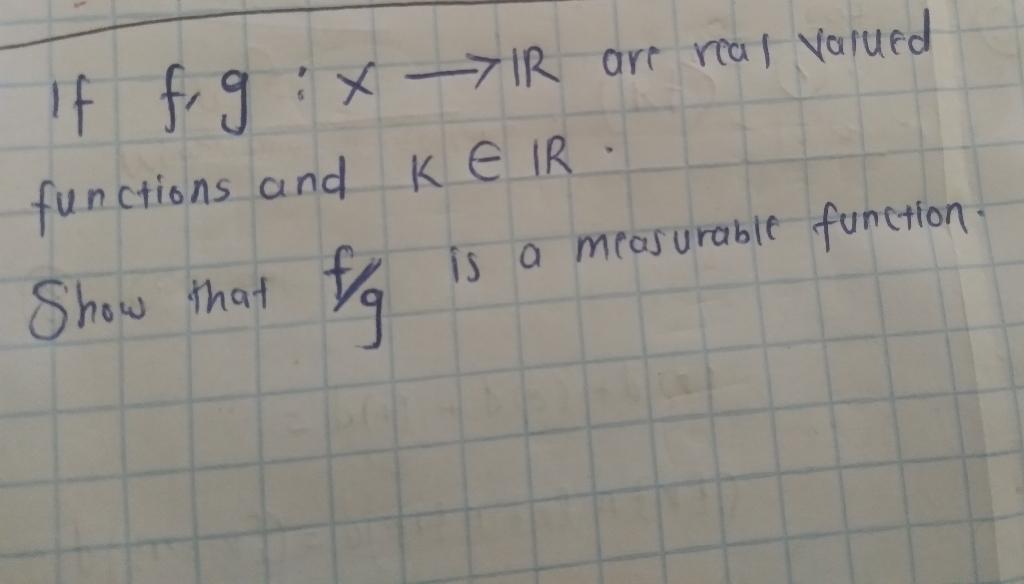 If f, g : X → ℝ are real valued
functions and K ∈ ℝ.
Show that f/g is a measurable function.